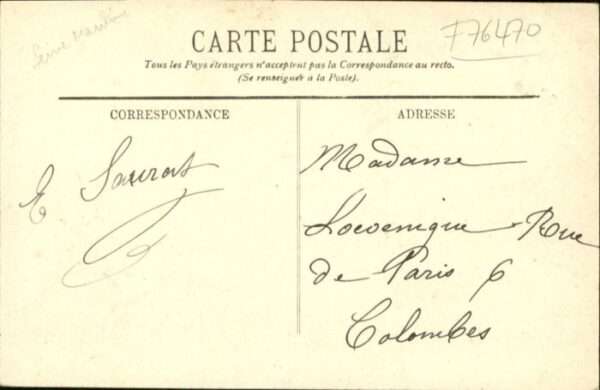 Seine Maritime
F76470
CARTE POSTALE
Tous les Pays étrangers n'acceptent pas la Correspondance au recto.
(Se renseigner à la Poste).
CORRESPONDANCE
E Saurat
ADRESSE
Madame
Loevenique Rue
de Paris 6
Colombes